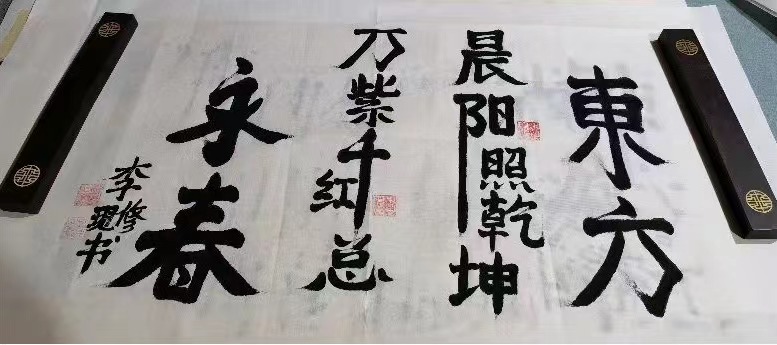 東方
晨阳照乾坤
万紫千红总
永春
李修书